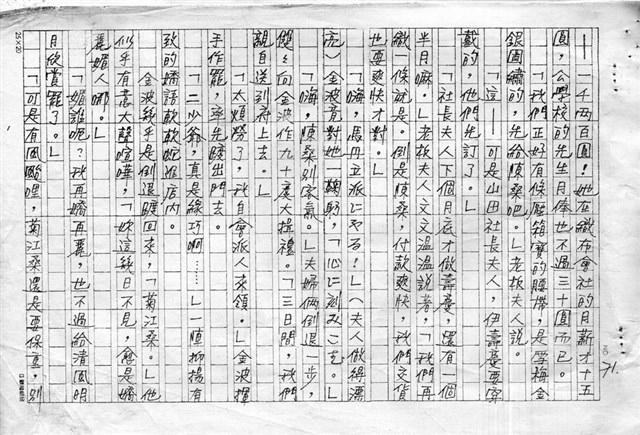 ——一千兩百圓！她在織布會社的月薪才十五
圓，公學校的先生月俸也不過三十圓而已。
「我們正好有條壓箱寶的腰帶，是學梅金
銀圖繡的，先給陳桑吧。」老板夫人說。
「這——可是山田社長夫人，伊壽宴要穿
戴的，他們先訂了。」
「社長夫人下個月底才做壽宴，還有一個
半月嘛。」老板夫人文文溫溫說著，「我們再
織一條就是。倒是陳桑，付款爽快，我們交貨
也要爽快才對。」
「嗨，馬丹立派にやる！」（夫人做得漂
亮）金波竟對她一鞠躬，「心に刻みこむ。」
「嗨，陳桑別客氣。」夫婦倆倒退一步，
健々向金波作九十度大揖禮。「三日間，我們
親自送到府上去。」
「太煩勞了，我自會派人來領。」金波揮
手作罷，率先踱出門去。
「二少爺，真是綠巧啊……」一陣抑揚有
致的嬌語軟軟踱進店內。
金波幾乎是倒退踱回來，「菊江桑。」他
似乎有意大聲喧嘩，「妳這幾日不見，愈是嬌
麗媚人哪。」
「媚誰呢？我再嬌再麗，也不過給清風明
月欣賞罷了。」
「可是有風颱哩，菊江桑還是要保重，別
71.
25×20